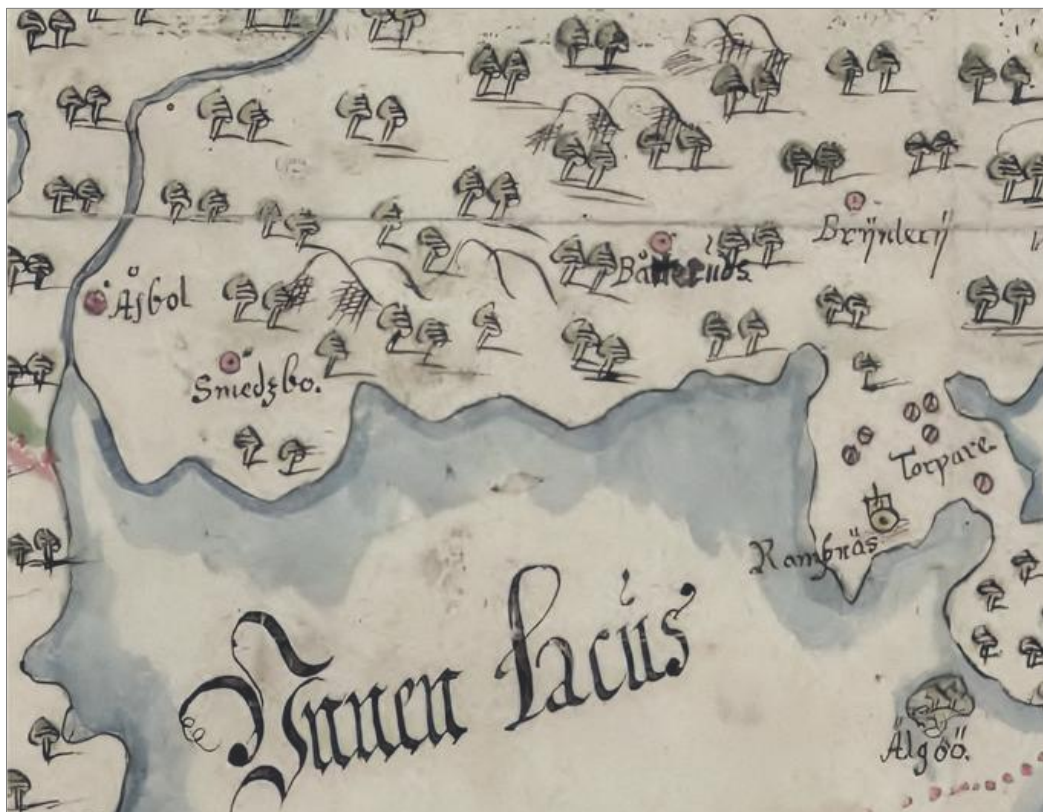 Brÿnlerÿ
Båtteriids
Åsbol
Smedzbo.
Torpare.
Rambnäs
Ynnen Lacus
Älgöö.